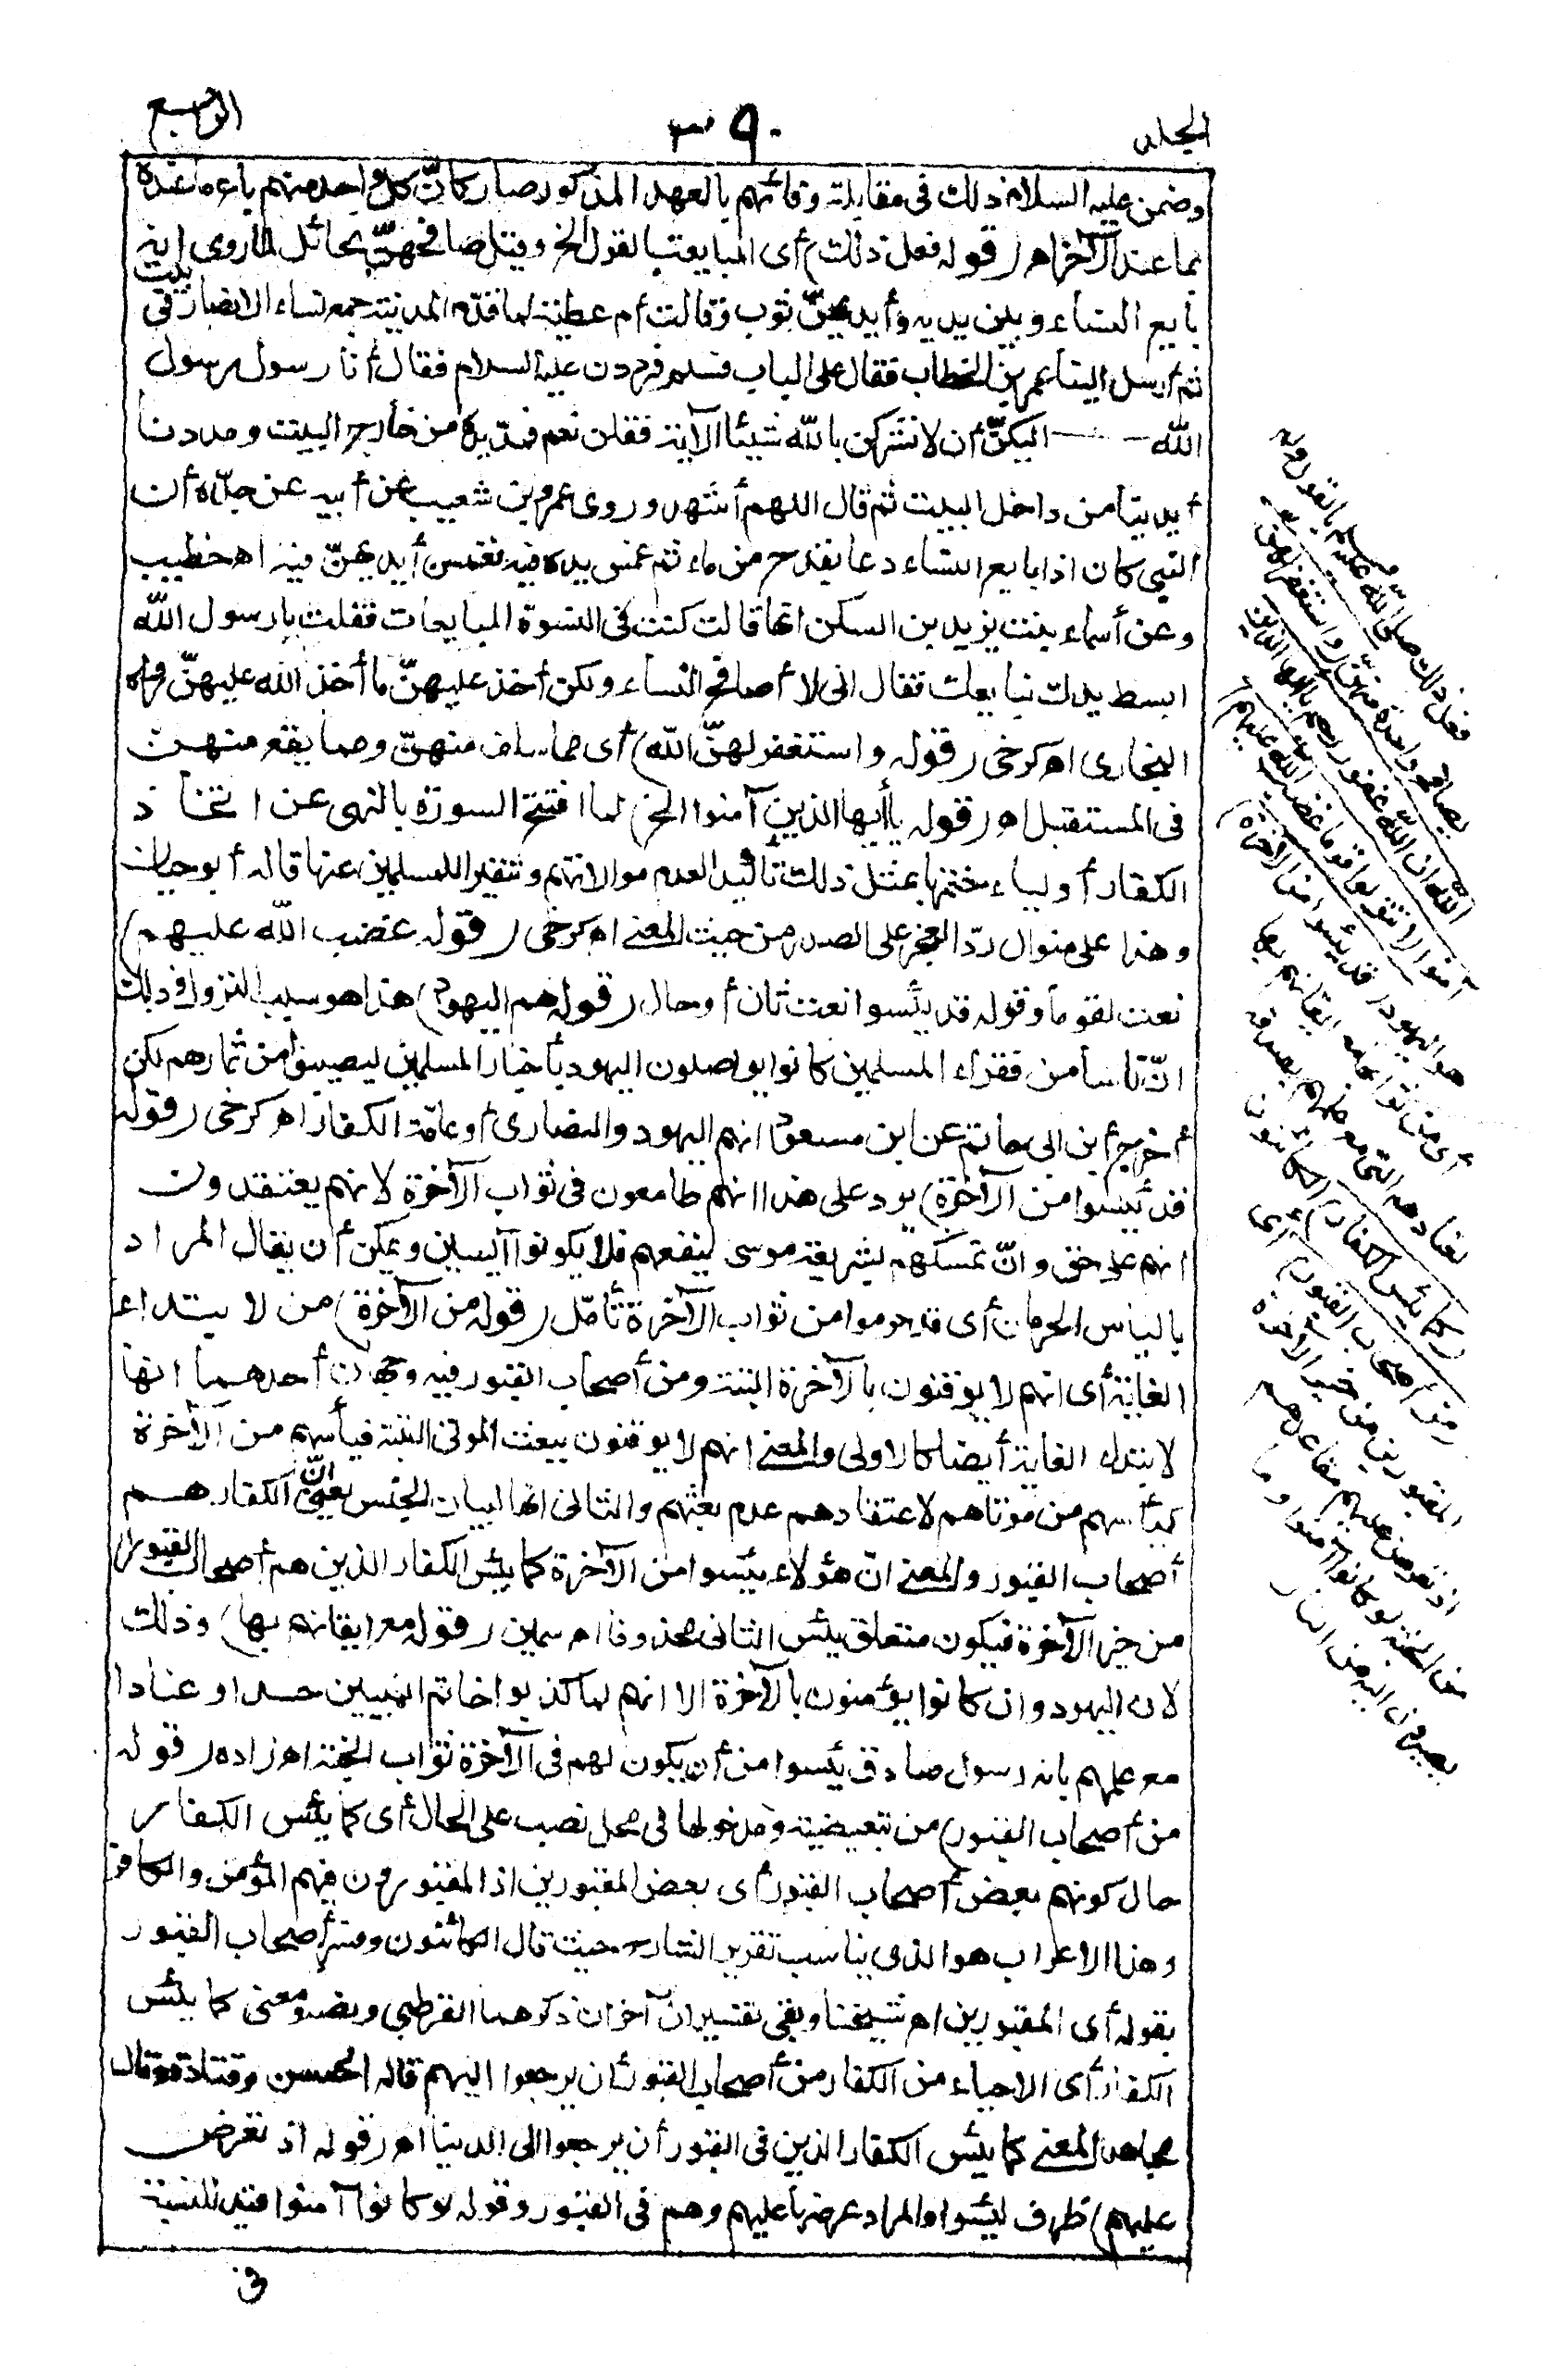 الجلد
٣٩٠
الرابع
وضمن عليه السلام ذلك فى مقابلة وفائهم بالعهد المذكور صار كأنّ كل واحد منهم باع ما عنده
بما عند الآخر اهـ (قوله فعل ذلك) أى المبايعة بالقول الخ وقيل صافحهنّ بحائل لما روى انه
بايع النساء وبين يديه وأيديهنّ ثوب وقالت أم عطية لما قدم المدينة جمع نساء الانصار فى بيت
ثم أرسل الينا عمر بن الخطاب فقال على الباب فسلم فرددن عليه السلام فقال أنا رسول رسول
الله اليكنّ أن لا تشركن بالله شيئا الآية فقلن نعم فمدّ يده من خارج البيت ومددنا
أيدينا من داخل البيت ثم قال اللهم أشهد وروى عمرو بن شعيب عن أبيه عن جدّه أن
النبى كان اذا بايع النساء دعا بقدح من ماء ثم غمس يده فيه فغمس أيديهنّ فيه اهـ خطيب
وعن أسماء بنت يزيد بن السكن انها قالت كنت فى النسوة المبايعات فقلت يا رسول الله
ابسط يدك نبايعك فقال انى لا أصافح النساء ولكن أخذ عليهنّ ما أخذ الله عليهنّ رواه
البخارى اهـ كرخى (قوله واستغفر لهنّ الله) أى مما سلف منهنّ ومما يقع منهن
فى المستقبل اهـ (قوله يا أيها الذين آمنوا الخ) لما افتتح السورة بالنهى عن اتخاذ
الكفار أولياء ختمها بمثل ذلك تأكيدا لعدم موالاتهم وتنفيرا للمسلمين عنها قاله أبو حيان
وهذا على منوال ردّ العجز على الصدر من حيث المعنى اهـ كرخى (قوله غضب الله عليهم)
نعت لقوما وقوله قد يئسوا نعت ثان أو حال (قوله هم اليهود) هذا هو سبب النزول وذلك
انّ ناسا من فقراء المسلمين كانوا يواصلون اليهود بأخبار المسلمين ليصيبوا من ثمارهم لكن
أخرج أبن ابى حاتم عن ابن مسعود انهم اليهود والنصارى أو عامّة الكفار اهـ كرخى (قوله
قد يئسوا من الآخرة) يرد على هذا انهم طامعون فى ثواب الآخرة لانهم يعتقدون
انهم على حق وانّ تمسكهم بشريعة موسى ينفعهم فلا يكونوا آيسين ويمكن أن يقال المراد
بالياس الحرمان أى قد حرموا من ثواب الآخرة تأمّل (قوله من الآخرة) من لابتداء
الغاية أى انهم لا يوقنون بالآخرة البتة ومن أصحاب القبور فيه وجهان أحدهما انها
لابتداء الغاية أيضا كالاولى والمعنى انهم لا يوقنون ببعث الموتى البتة فيأسهم من الآخرة
كيأسهم من موتاهم لاعتقادهم عدم بعثهم والثانى انها لبيان الجنس يعنى انّ الكفار هم
أصحاب القبور والمعنى انّ هؤلاء يئسوا من الآخرة كما يئس الكفار الذين هم أصحاب القبور
من خير الآخرة فيكون متعلق يئس الثانى محذوفا اهـ سمين (قوله مع ايقانهم بها) وذلك
لان اليهود وان كانوا يؤمنون بالآخرة الا انهم لما كذبوا خاتم النبيين حسدا وعنادا
مع علمهم بانه رسول صادق يئسوا من أن يكون لهم فى الآخرة ثواب الجنة اهـ زاده (قوله
من أصحاب القبور) من تبعيضية ومدخولها فى محل نصب على الحال أى كما يئس الكفار
حال كونهم بعض أصحاب القبور أى بعض المقبورين اذ المقبورون فيهم المؤمن والكافر
وهذا الاعراب هو الذى يناسب تقرير الشارح حيث قال الكائنون وفسر أصحاب القبور
بقوله أى المقبورين اهـ شيخنا وبقى تفسيران آخران ذكرهما القرطبى ونصه ومعنى كما يئس
الكفار أى الاحياء من الكفار من أصحاب القبور أن يرجعوا اليهم قاله الحسن وقتادة وقال
مجاهد المعنى كما يئس الكفار الذين فى القبور أن يرجعوا الى الدنيا اهـ (قوله اذ تعرض
عليهم) ظرف ليئسوا والمراد عرضها عليهم وهم فى القبور وقوله لو كانوا آمنوا قيد للنسبة
فى
فعل ذلك صلى الله عليه وسلم بالقول ولم
يصافح واحدة منهنّ (واستغفر لهنّ
الله ان الله غفور رحيم يا أيها الذين
آمنوا لا تتولوا قوما غضب الله عليهم)
هم اليهود (قد يئسوا من الآخرة)
أى من ثوابها مع ايقانهم بها
لعنادهم النبى مع علمهم بصدقه
(كما يئس الكفار) الكائنون
(من أصحاب القبور) أى
المقبورين من خير الآخرة
اذ تعرض عليهم مقاعدهم
من الجنة لو كانوا آمنوا وما
يصيرون اليه من النار